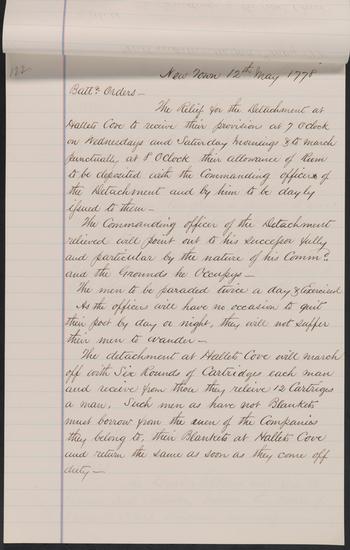 122
New Town 12th May 1778
Battn Orders—
The Relief for the Detachment at
Hallets Cove to receive their provision at 7 OClock
on Wednesdays and Saturday Mornings & to march
punctualy at 8 OClock their allowance of Rum
to be deposited with the Commanding officers of
the Detachment and by him to be dayly
issued to them—
The Commanding officer of the Detachment
relieved will point out to his Successor fully
and particular by the nature of his Commd
and the Grounds he Occupys—
The men to be paraded twice a day & Exercised
As the officers will have no occasion to quit
their post by day or night, they will not suffer
their men to wander—
The detachment at Hallets Cove will march
off with Six Rounds of Cartridges each man
and receive from those they releive 12 Cartriges
a man. Such men as have not Blankets
must borrow from the men of the Companies
they belong to, their Blankets at Hallets Cove
and return the same as soon as they come off
duty—